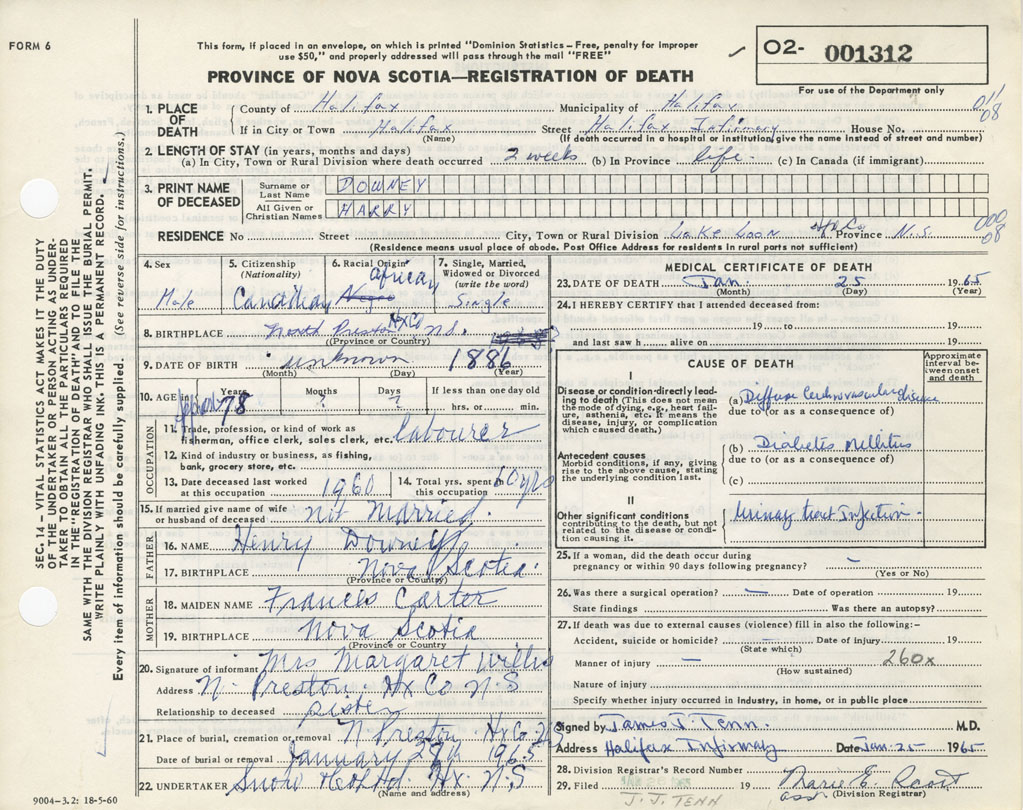 FORM 6
This form, if placed in an envelope, on which is printed "Dominion Statistics – Free, penalty for improper
use $50," and properly addressed will pass through the mail "FREE"
PROVINCE OF NOVA SCOTIA—REGISTRATION OF DEATH
O2- 001312
For use of the Department only
SEC. 14 – VITAL STATISTICS ACT MAKES IT THE DUTY
OF THE UNDERTAKER OR PERSON ACTING AS UNDER-
TAKER TO OBTAIN ALL THE PARTICULARS REQUIRED
IN THE "REGISTRATION OF DEATH" AND TO FILE THE
SAME WITH THE DIVISION REGISTRAR WHO SHALL ISSUE THE BURIAL PERMIT.
WRITE PLAINLY WITH UNFADING INK. THIS IS A PERMANENT RECORD.
Every item of information should be carefully supplied. (See reverse side for instructions.)
1. PLACE OF DEATH
County of Halifax Municipality of Halifax 011
If in City or Town Halifax Street Halifax Infirmary House No. 08
(Name) (If death occurred in a hospital or institution, give the name instead of street and number)
2. LENGTH OF STAY (in years, months and days)
(a) In City, Town or Rural Division where death occurred 2 weeks (b) In Province life. (c) In Canada (if immigrant)
3. PRINT NAME OF DECEASED
Surname or Last Name DOWNEY
All Given or Christian Names HARRY
RESIDENCE No Street City, Town or Rural Division Lake Loon Hfx Co Province N.S. 000 08
(Residence means usual place of abode. Post Office Address for residents in rural parts not sufficient)
4. Sex Male
5. Citizenship (Nationality) Canadian
6. Racial Origin African Negro
7. Single, Married, Widowed or Divorced (write the word) Single
8. BIRTHPLACE North Preston Hx Co N.S.
(Province or Country)
9. DATE OF BIRTH unknown 1886
(Month) (Day) (Year)
10. AGE Years Months Days If less than one day old
78 ? ? hrs. or min.
OCCUPATION
11. Trade, profession, or kind of work as
fisherman, office clerk, sales clerk, etc. labourer
12. Kind of industry or business, as fishing,
bank, grocery store, etc.
13. Date deceased last worked at this occupation 1960
14. Total yrs. spent in this occupation 60 yrs
15. If married give name of wife
or husband of deceased not Married.
FATHER
16. NAME Henry Downey
17. BIRTHPLACE Nova Scotia
(Province or Country)
MOTHER
18. MAIDEN NAME Frances Carter
19. BIRTHPLACE Nova Scotia
(Province or Country)
20. Signature of informant Mrs Margaret Willis
Address N. Preston. Hx Co N.S
Relationship to deceased sister
21. Place of burial, cremation or removal N Preston Hx Co
Date of burial or removal January 28th 1965
22. UNDERTAKER Snow Hx. N.S
(Name and address)
9004-3.2: 18-5-60
MEDICAL CERTIFICATE OF DEATH
23. DATE OF DEATH Jan. 25 1965
(Month) (Day) (Year)
24. I HEREBY CERTIFY that I attended deceased from:
19 to 19
and last saw h alive on 19
CAUSE OF DEATH
Approximate interval between onset and death
I
Disease of condition-directly lead-
ing to death (This does not mean
the mode of dying, e.g., heart fail-
ure, asthenia, etc. It means the
disease, injury, or complication
which caused death.)
(a) Diffuse Cerebrovascular disease
due to (or as a consequence of)
Antecedent causes
Morbid conditions, if any, giving
rise to the above cause, stating
the underlying condition last.
(b) Diabetis Mellitis
due to (or as a consequence of)
(c)
II
Other significant conditions
contributing to the death, but not
related to the disease or condi-
tion causing it.
Urinary tract Infection –
25. If a woman, did the death occur during
pregnancy or within 90 days following pregnancy? –
(Yes or No)
26. Was there a surgical operation? – Date of operation 19
State findings Was there an autopsy?
27. If death was due to external causes (violence) fill in also the following:–
Accident, suicide or homicide? – Date of injury 19
(State which)
Manner of injury – 260x
(How sustained)
Nature of injury
Specify whether injury occurred in Industry, in home, or in public place
Signed by James J. Tenn. M.D.
Address Halifax Infirmary Date Jan. 25 1965
28. Division Registrar's Record Number
29. Filed 19 Marie E.
(Division Registrar)
J. J. TENN